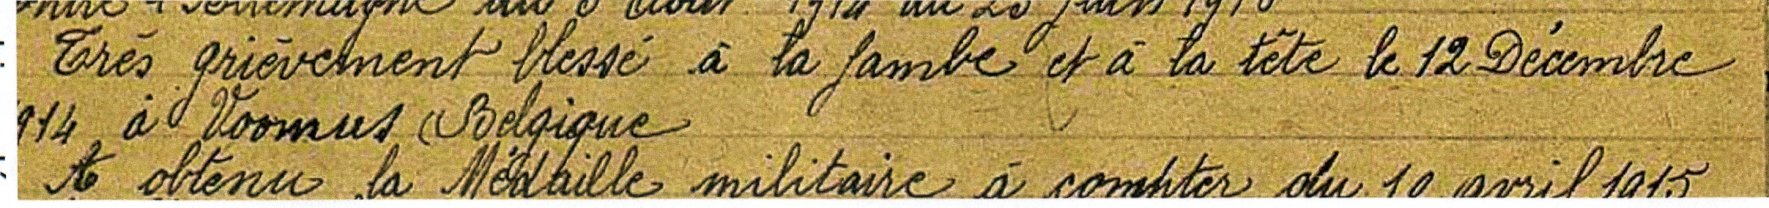 l'Allemagne du 3 Août 1914 au
Très grièvement blessé à la jambe et à la tête le 12 Décembre
1914 à Voomus (Belgique
A obtenu la Médaille militaire à compter du 10 avril 1915